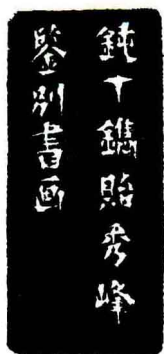 鈍丁鐫貽秀峰
鑒別書画